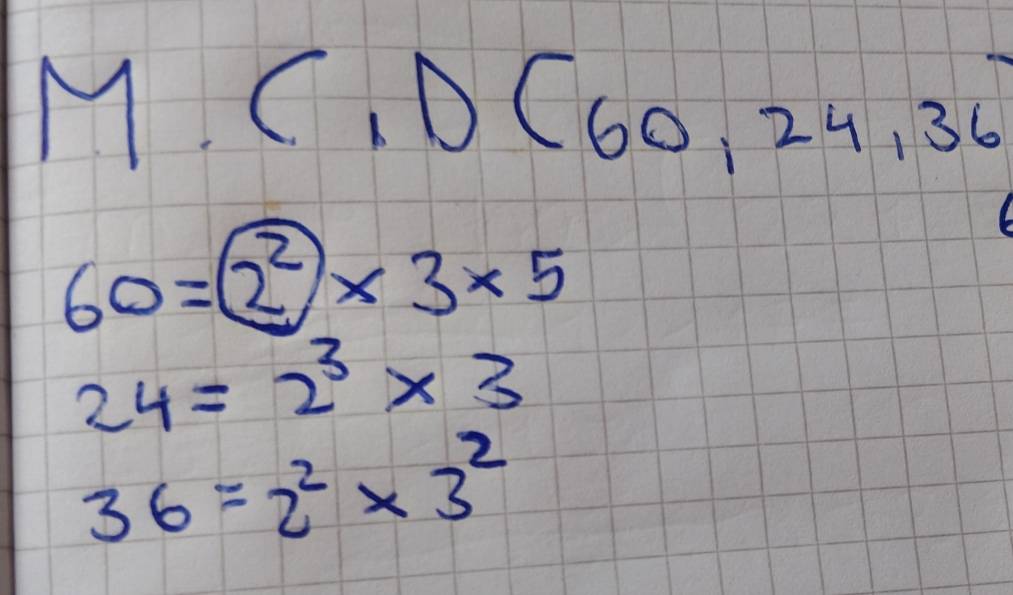 M.C.D(60, 24, 36)
60 = 2² × 3 × 5
24 = 2³ × 3
36 = 2² × 3²